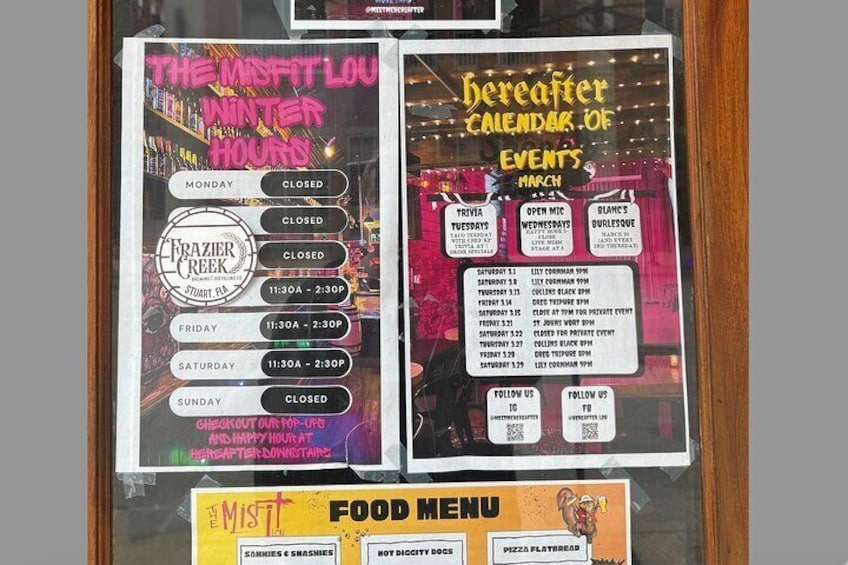 @MEETMEHEREAFTER
THE MISFIT LOU
WINTER
HOURS
MONDAY CLOSED
CLOSED
CLOSED
11:30A - 2:30P
FRIDAY 11:30A - 2:30P
SATURDAY 11:30A - 2:30P
SUNDAY CLOSED
FRAZIER
CREEK
BREWING & DISTILLING CO.
STUART, FLA
CHECK OUT OUR POP-UPS
AND HAPPY HOUR AT
HEREAFTER DOWNSTAIRS
hereafter
CALENDAR OF
EVENTS
MARCH
TRIVIA
TUESDAYS
TACO TUESDAY
WITH CHEF KT
TRIVIA AT 7
DRINK SPECIALS
OPEN MIC
WEDNESDAYS
HAPPY HOUR 5-
CLOSE
LIVE MUSIC
STAGE AT 8
BLANC'S
BURLESQUE
MARCH 20
(AND EVERY
3RD THURSDAY)
SATURDAY 3.1 LILY CORNMAN 9PM
SATURDAY 3.8 LILY CORNMAN 9PM
THURSDAY 3.13 COLLINS BLACK 8PM
FRIDAY 3.14 GREG TRIPURE 8PM
SATURDAY 3.15 CLOSE AT 7PM FOR PRIVATE EVENT
FRIDAY 3.21 ST. JOHNS WORT 8PM
SATURDAY 3.22 CLOSED FOR PRIVATE EVENT
THURSDAY 3.27 COLLINS BLACK 8PM
FRIDAY 3.28 GREG TRIPURE 8PM
SATURDAY 3.29 LILY CORNMAN 9PM
FOLLOW US
IG
@MEETMEHEREAFTER
FOLLOW US
FB
@HEREAFTER LOU
THE MISFIT
LOU
FOOD MENU
SAMMIES & SMASHIES
HOT DIGGITY DOGS
PIZZA FLATBREAD